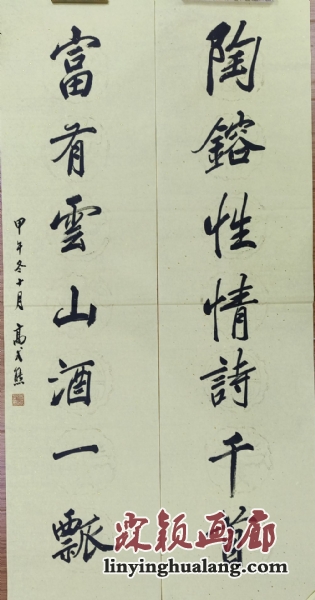 陶鎔性情詩千首
富有雲山酒一瓢
甲午冬十月 高式熊
霖颖画廊
linyinghualang.com